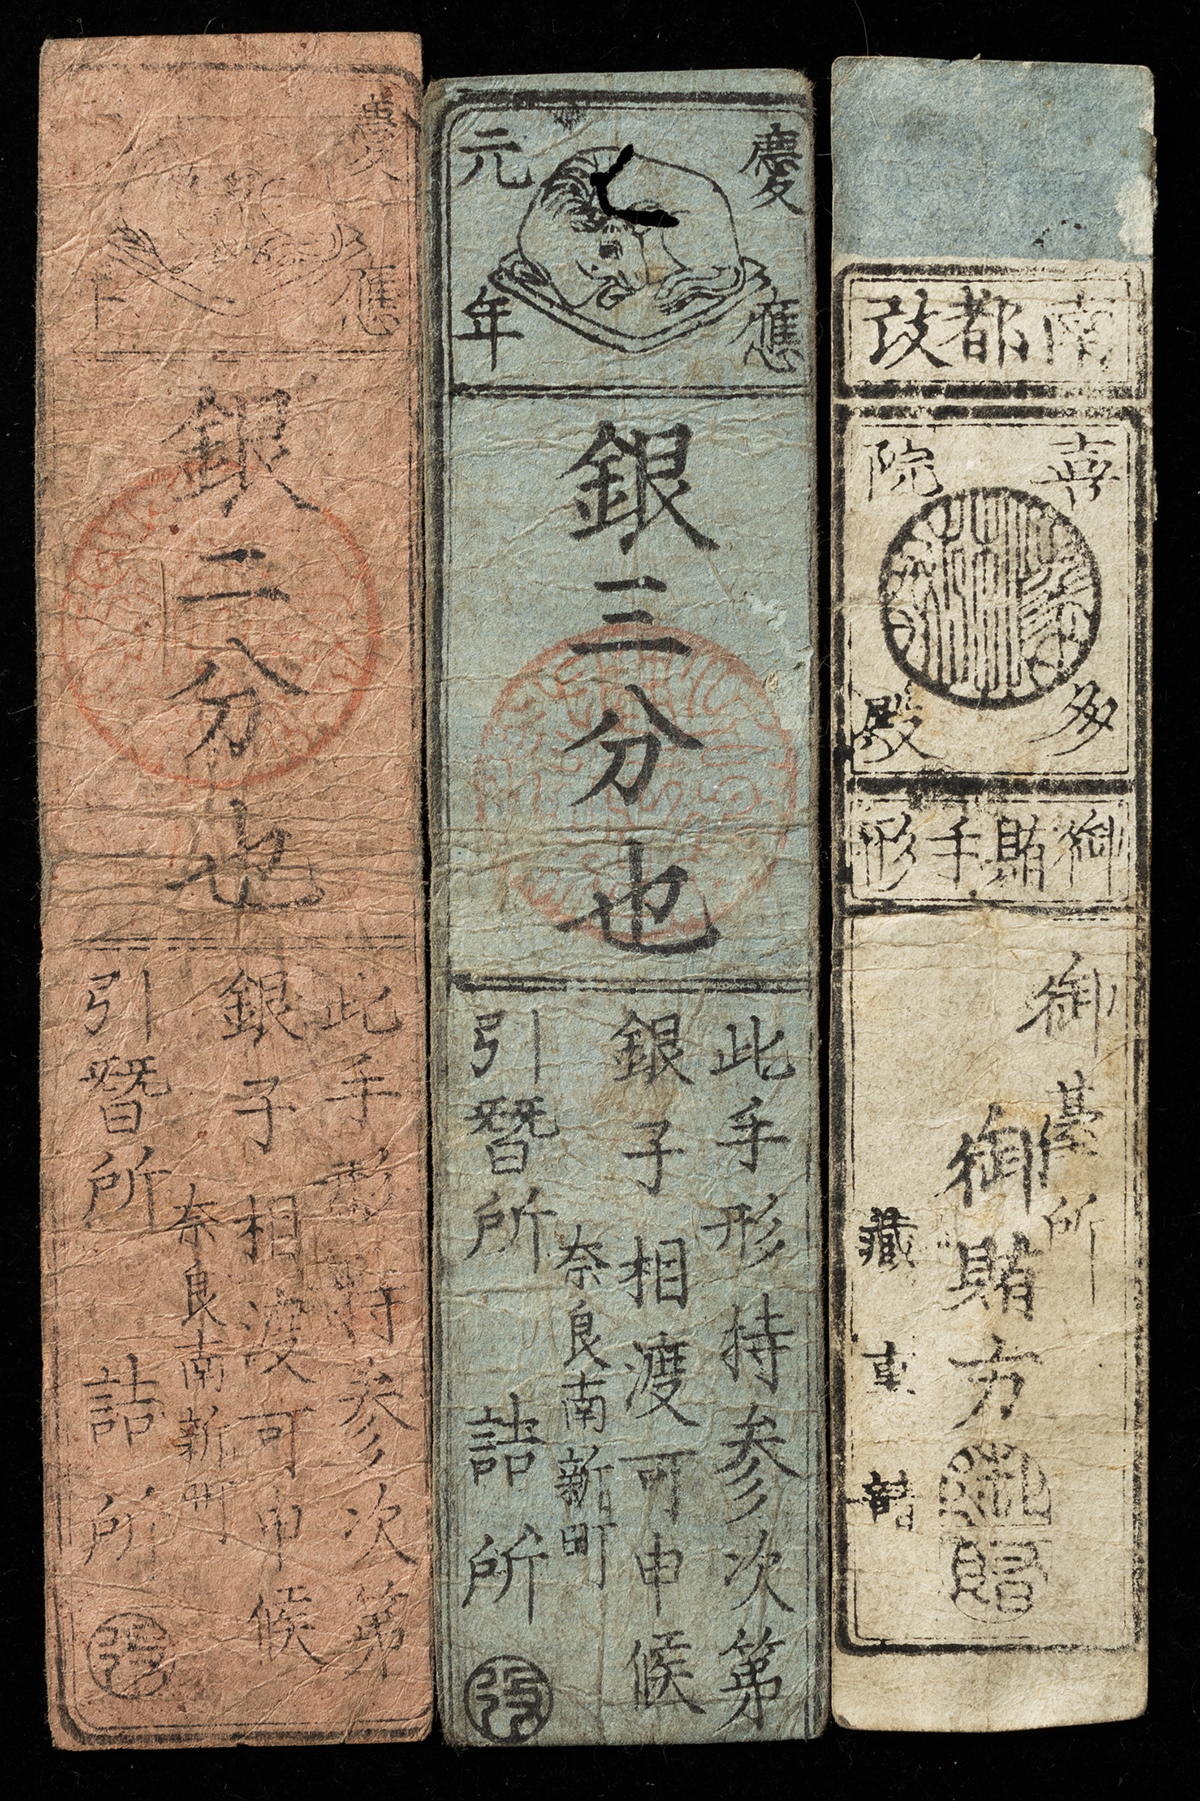 慶應
銀二分也
此手形持参次第
銀子相渡可申候
奈良南新町
引替所 詰所
慶應
元年
銀三分也
此手形持参次第
銀子相渡可申候
奈良南新町
引替所 詰所
南都改
喜多
院殿
御賄手形
御臺所
御賄方